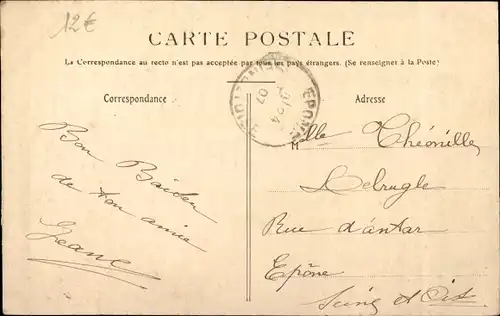 12€
CARTE POSTALE
La Correspondance au recto n'est pas acceptée par tous les pays étrangers. (Se renseigner à la Poste)
Correspondance
Adresse
EPONE
07
Bon Baiser
de ton amie
Jeanne
Mlle Théonille
Lebrugle
Rue d'antar
Epône
Seine et Oise